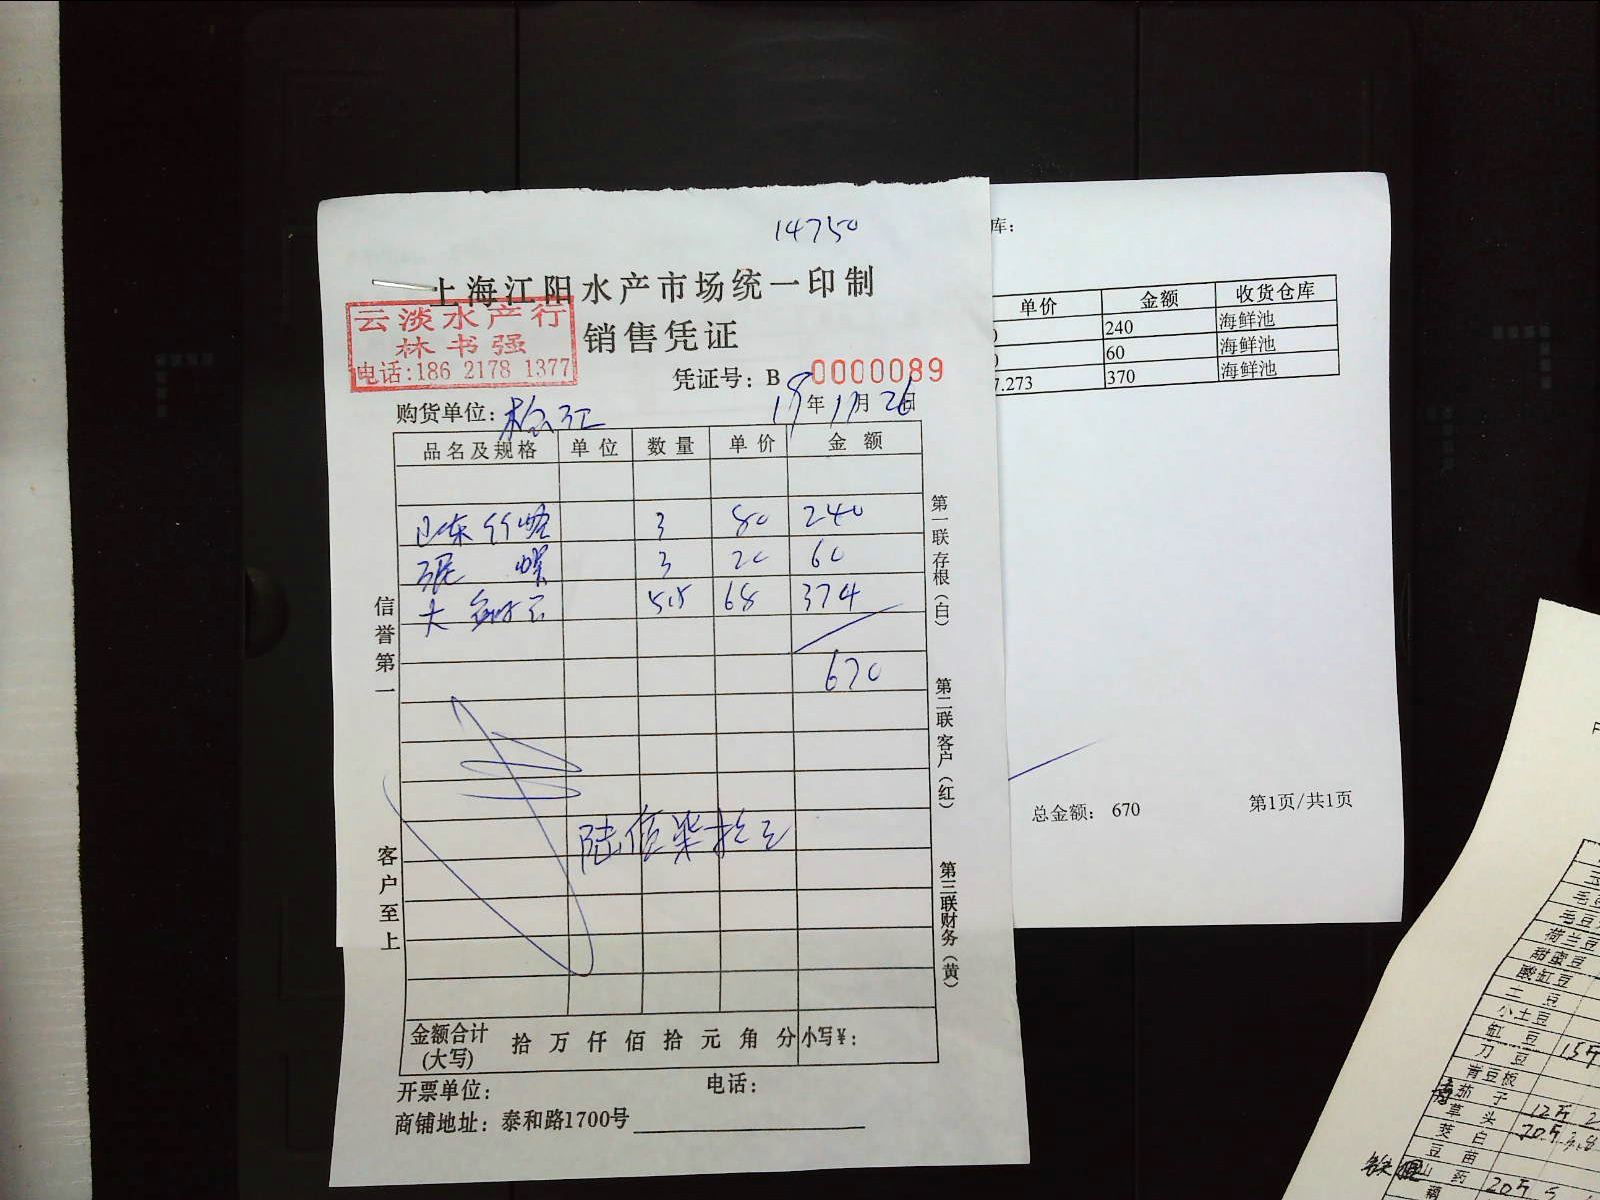 14750
上海江阳水产市场统一印制
云淡水产行
林书强
电话:186 2178 1377
销售凭证
凭证号: B 0000089
购货单位: 松江
19年11月26日
品名及规格 单位 数量 单价 金额
山东竹蛏 3 80 240
泥螺 3 20 60
大 5.5 68 374
670
陆佰柒拾元
金额合计(大写) 拾 万 仟 佰 拾 元 角 分 小写¥:
开票单位: 电话:
商铺地址: 泰和路1700号
信誉第一
客户至上
第一联存根(白)
第二联客户(红)
第三联财务(黄)
库:
单价 金额 收货仓库
240 海鲜池
60 海鲜池
7.273 370 海鲜池
总金额: 670 第1页/共1页
荷兰豆
甜蜜豆
酸缸豆
土豆
小土豆
缸豆
刀豆 15斤
青豆板
茄子
草头 12斤
茭白 20斤
豆苗
山药 20斤